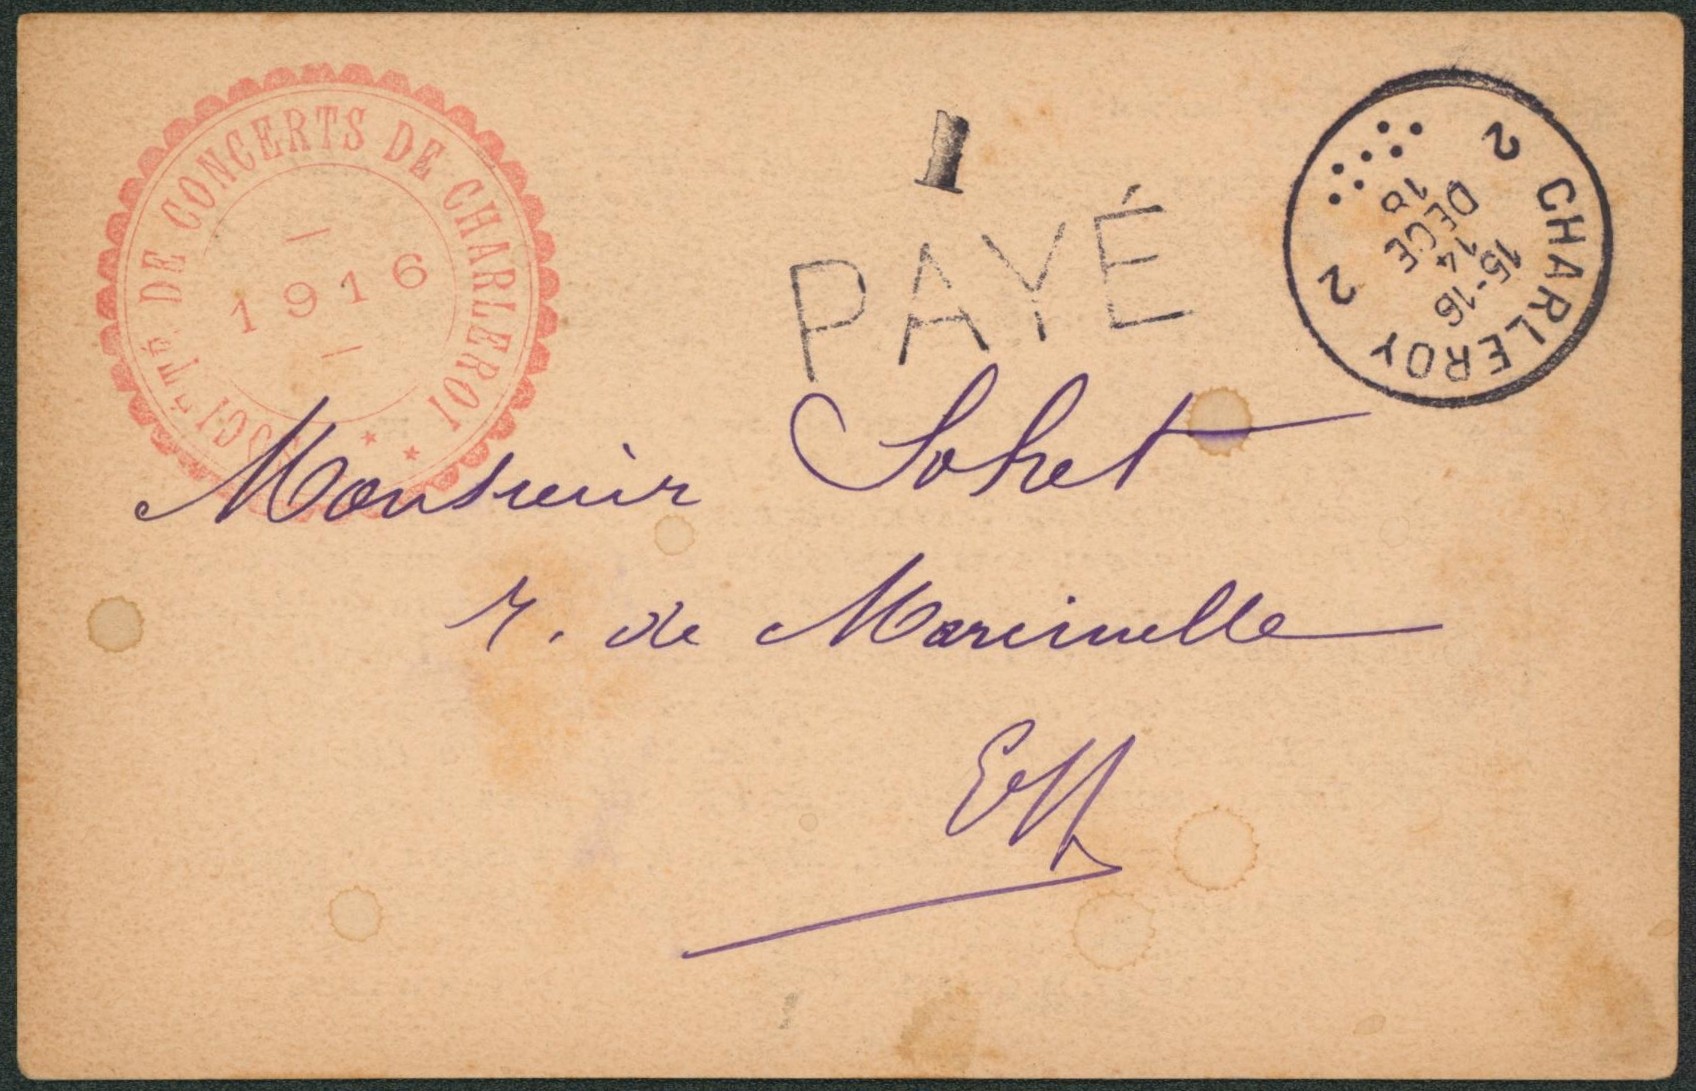 SOCIÉTÉ DE CONCERTS DE CHARLEROI
1916
1
PAYÉ
2 CHARLEROY 2
15-16
14
DECE
18
Monsieur Sohet
r. de Marcinelle
E/V